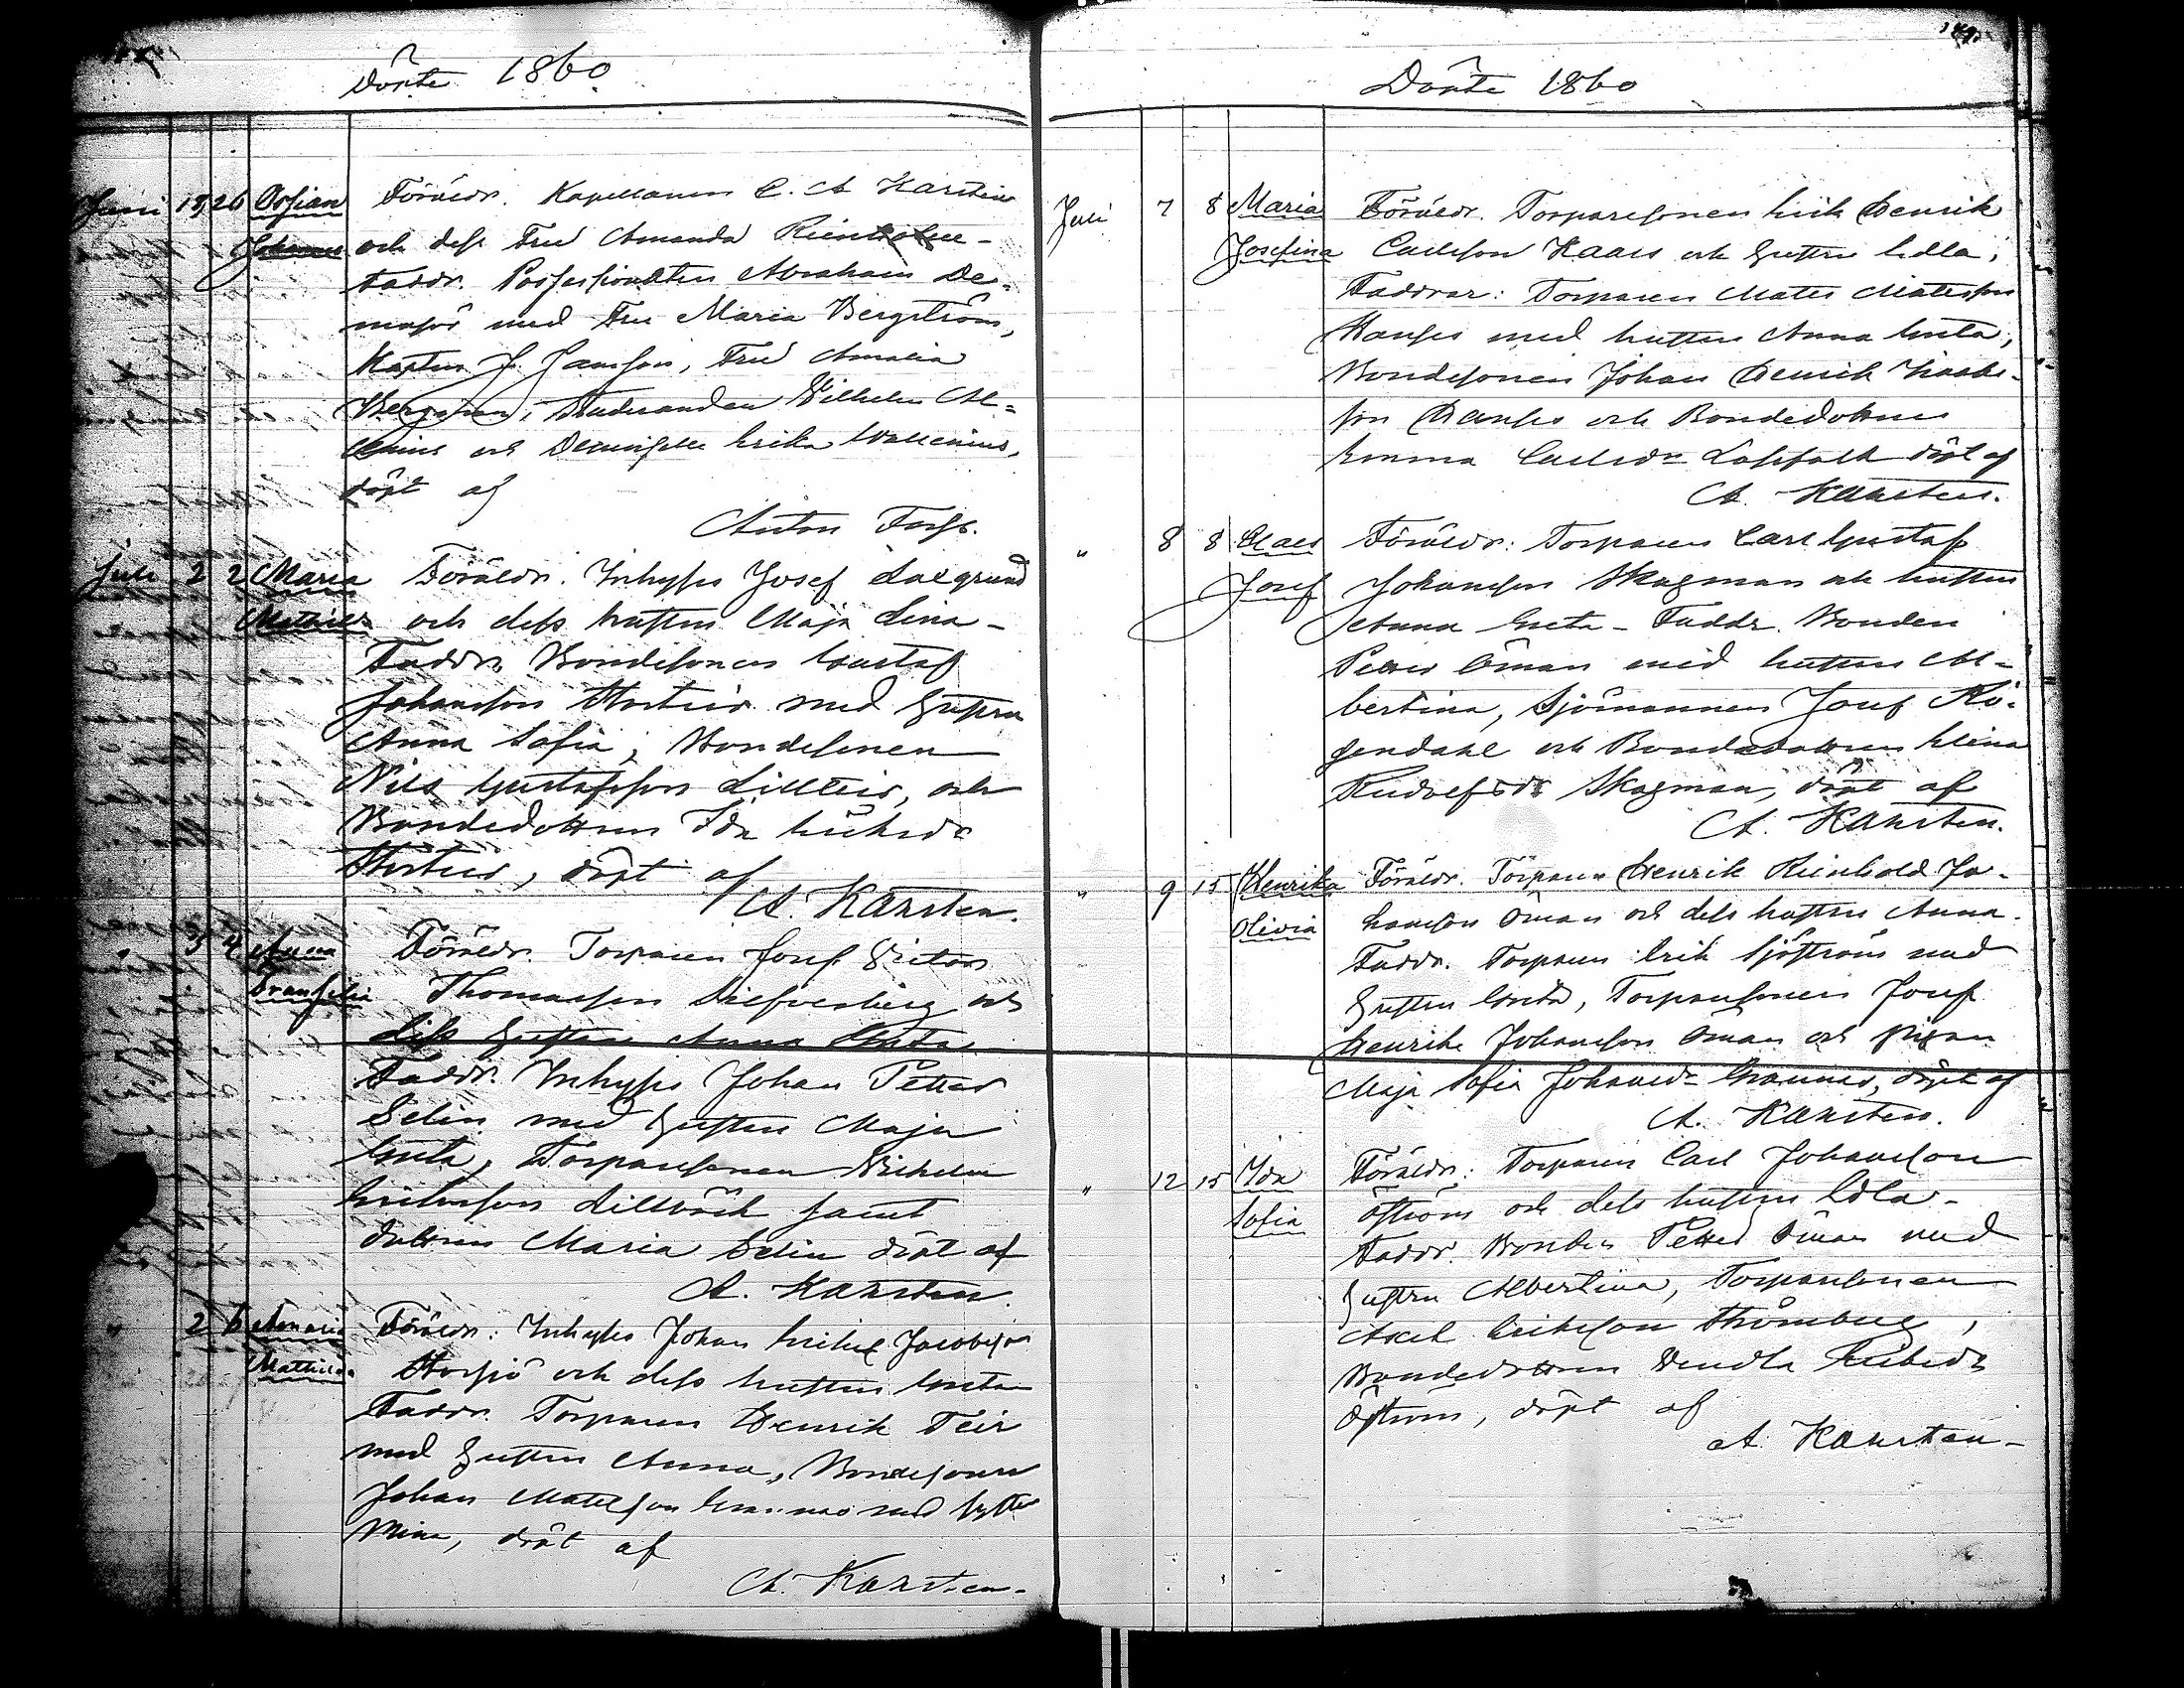 Döpte 1860
Juni 18 26 Ossian Föräldr. Kapellanen C. A Karsten
Johannes och dess Fru Amanda
Faddr. Possessionaten Abraham De-
med Fru Maria Bergström,
Kapten J. Jansson, Fru Amalia
Bergman, Studeranden Wilhelm Al-
och Demoiselle Erika Wallenius,
döpt af
Anton
Juli 2 2 Maria Föräldr. Inhyses Josef Dalgrund
Mathilda och dess hustru Maja Lina –
Faddr. Bondesonen Gustaf
Johansson Storteir med hustru
Anna Sofia, Bondesonen
Nils Gustafsson Lillteir, och
Bondedottren Ida Eriksdr
Storteir, döpt af
A. Karsten.
" 3 4 Anna Föräldr. Torparen Josef Victor
Sransfelia Thomasson och
dess hustru Anna Greta
Faddr. Inhyses Johan Petter
Selin med hustru Maja
Greta, Torparesonen Wilhelm
Eriksson samt
dottren Maria Selin döpt af
A. Karsten.
" 2 6 Amaria Föräldr: Inhyses Johan Eriks Jacobsson
Mathilda. Storsjö och dess hustru Greta
Faddr. Torparen Henrik Teir
med hustru Anna, Bondesonen
Johan Matsson Grannas med hustru
Mina, döpt af
A. Karsten.
Döpte 1860
Juli 7 8 Maria Föräldr. Torparesonen Erik Henrik
Josefina Carlsson Kaars och hustru Edla;
Faddrar: Torparen Mats Matsson
med hustru Anna Greta;
Bondesonen Johan Henrik
son och Bondedottren
Emma Carlsdr döpt af
A. Karsten.
" 8 8 Claes Föräldr: Torparen Carl Gustaf
Josef Johansson Skagman och hustru
Anna Greta – Faddr. Bonden
Petter Öman med hustru Al-
bertina, Sjömannen Josef Rö-
gendahl och Bondedottren Elina
Rudolfsdr Skagman, döpt af
A. Karsten.
" 9 15 Henrika Föräldr. Torparen Henrik Reinhold Jo-
Olivia hansson Öman och dess hustru Anna.
Faddr. Torparen Erik Sjöström med
hustru Greta, Torparesonen Josef
Henrik Johansson Öman och pigan
Maja Sofia Johansdr Grannas, döpt af
A. Karsten.
" 12 15 Ida Föräldr: Torparen Carl Johansson
Sofia Öström och dess hustru Edla –
Faddr. Bonden Petter Öman med
hustru Albertina, Torparesonen
Axel Eriksson Strömberg,
Bondedottren Wendla Eriksdr
Öström, döpt af
A. Karsten –